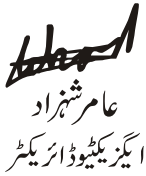 عامر شہزاد
ایگزیکٹیو ڈائریکٹر